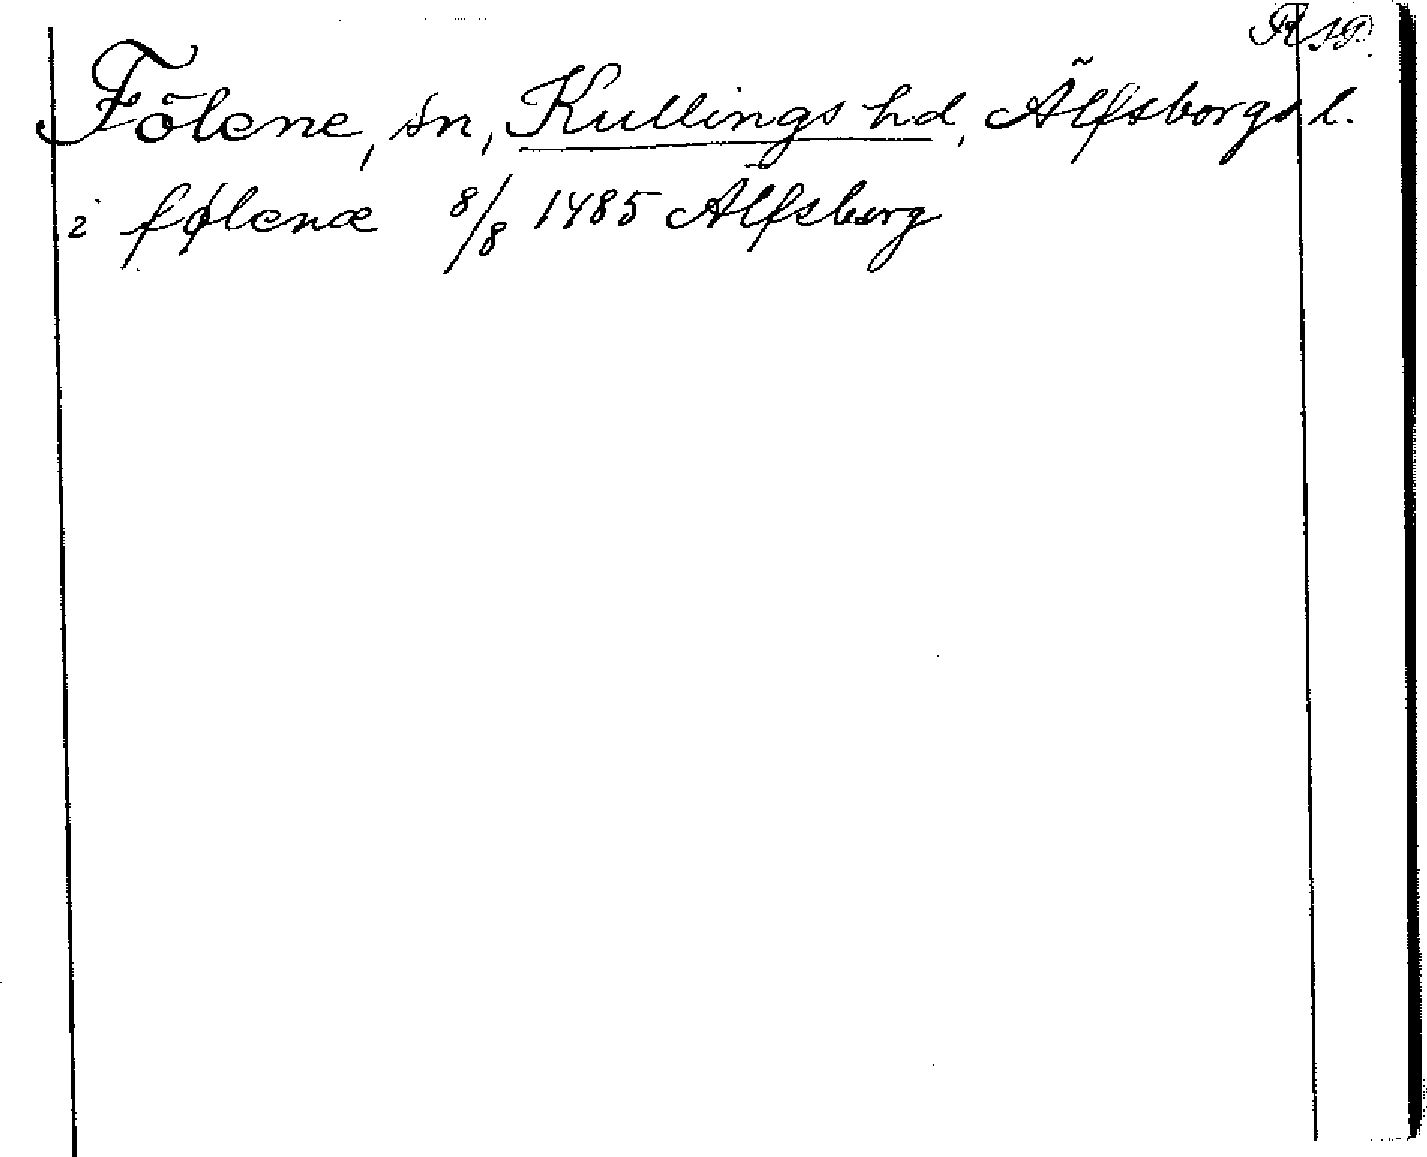 RAP.
Fölene, sn, Kullings hd, Älfsborgs l.
i følenæ 8/8 1485 Älfsborg